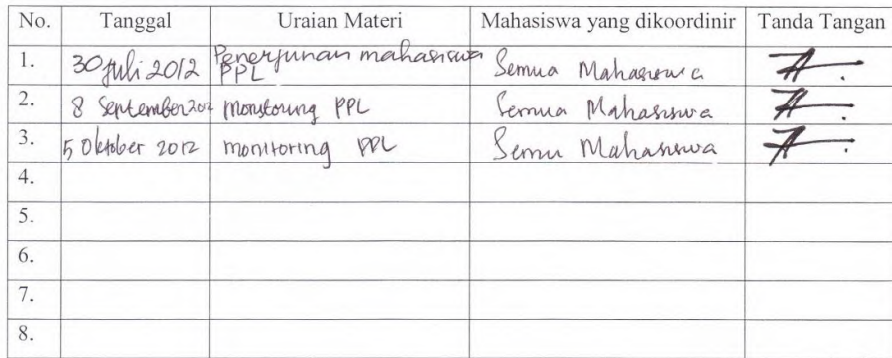 No. Tanggal Uraian Materi Mahasiswa yang dikoordinir Tanda Tangan
1. 30 Juli 2012 Penerjunan mahasiswa PPL Semua Mahasiswa
2. 8 September 2012 monitoring PPL Semua Mahasiswa
3. 5 Oktober 2012 monitoring PPL Semu Mahasiswa
4.
5.
6.
7.
8.